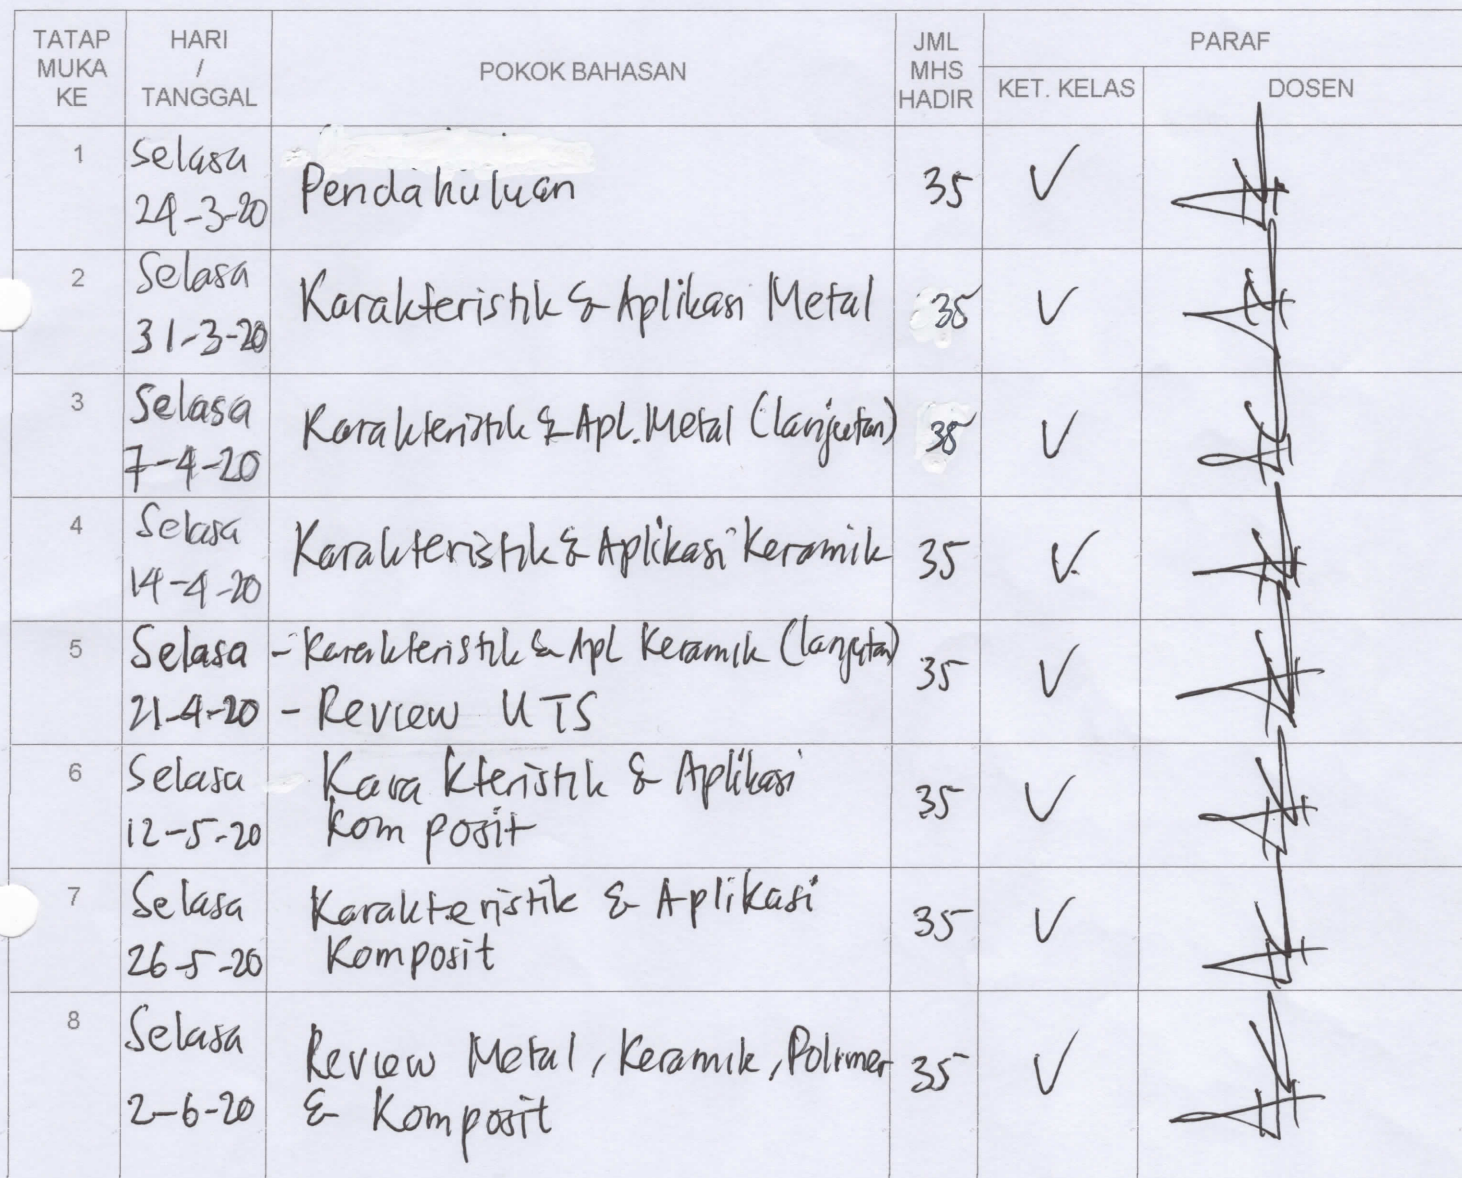 TATAP MUKA KE
HARI / TANGGAL
POKOK BAHASAN
JML MHS HADIR
PARAF
KET. KELAS
DOSEN
1
Selasa
24-3-20
Pendahuluan
35
2
Selasa
31-3-20
Karakteristik & Aplikasi Metal
35
3
Selasa
7-4-20
Karakteristik & Apl. Metal (lanjutan)
35
4
Selasa
14-4-20
Karakteristik & Aplikasi Keramik
35
5
Selasa
21-4-20
- Karakteristik & Apl Keramik (lanjutan)
- Review UTS
35
6
Selasa
12-5-20
Karakteristik & Aplikasi
Komposit
35
7
Selasa
26-5-20
Karakteristik & Aplikasi
Komposit
35
8
Selasa
2-6-20
Review Metal, Keramik, Polimer
& Komposit
35